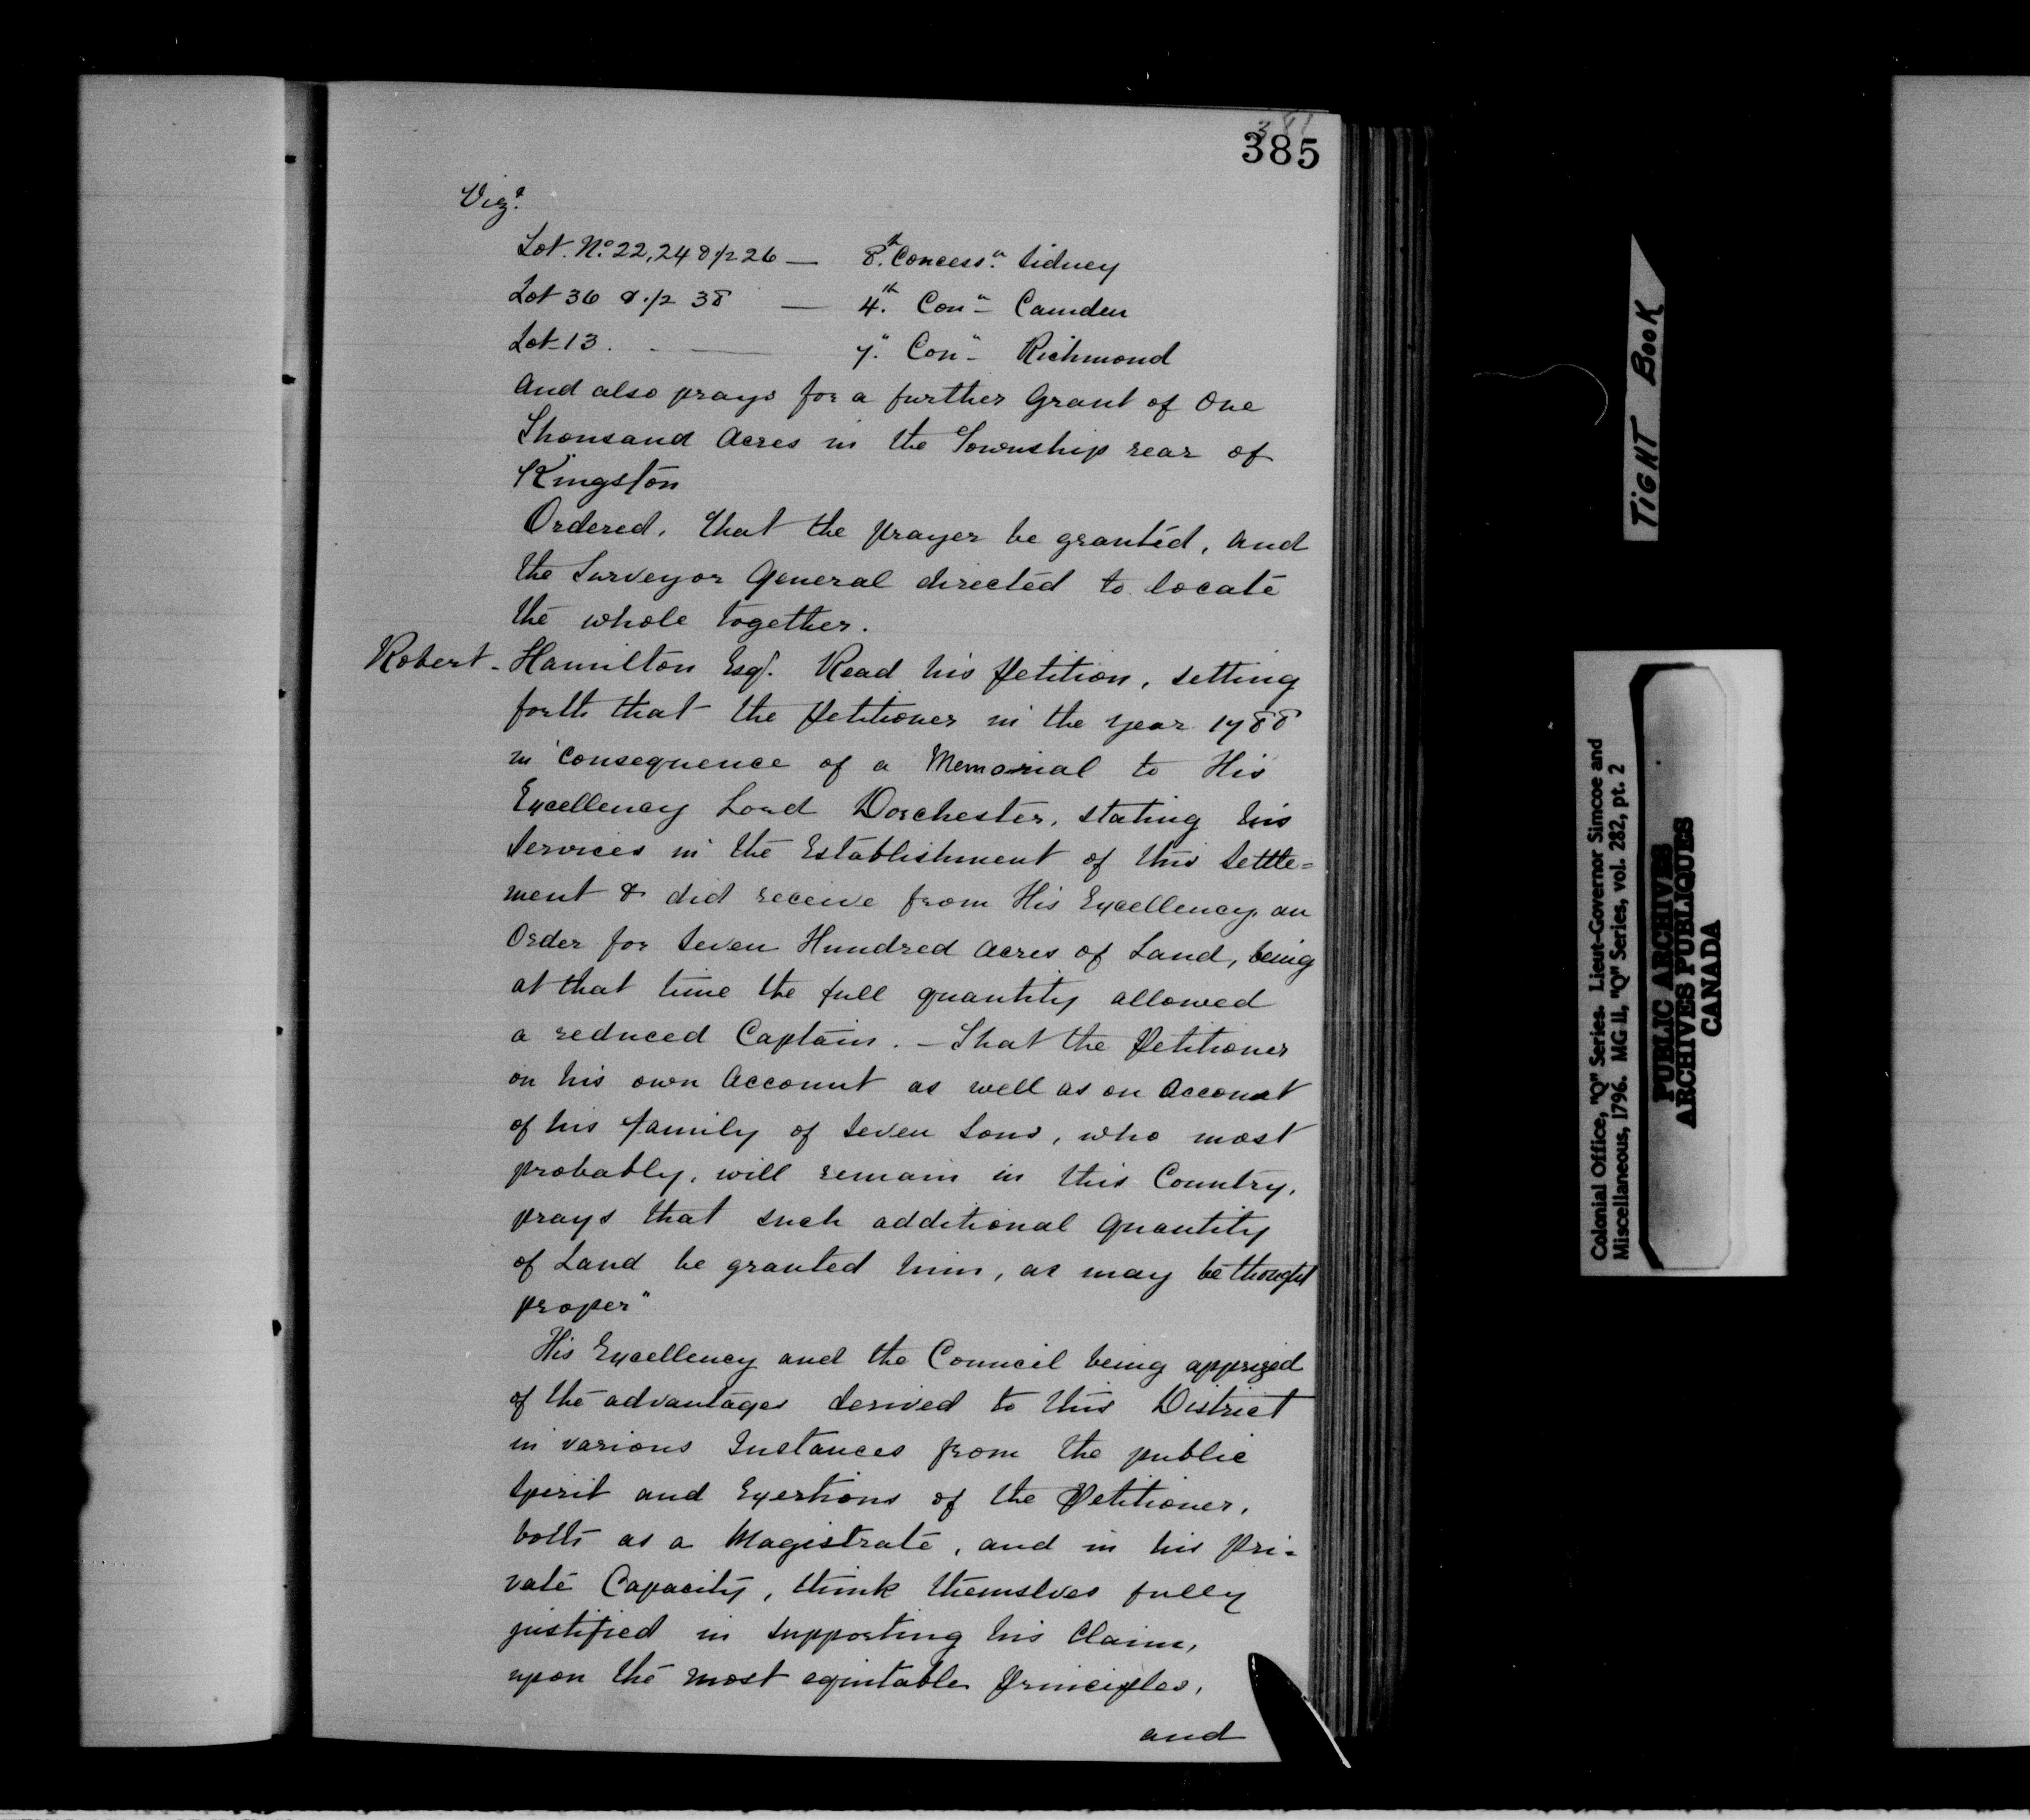 385
Vizt
Lot. No. 22, 24 & 1/2 26 — 8th Concessn. Sidney
Lot 36 & 1/2 38 — 4th Conn - Camden
Lot 13. — 7" Con" - Richmond
And also prays for a further Grant of One
Thousand Acres in the Township rear of
Kingston
Ordered, that the prayer be granted, and
the Surveyor General directed to locate
the whole together.
Robert - Hamilton Esqr. Read his Petition, setting
forth that the Petitioner in the year 1788
in Consequence of a Memorial to His
Excellency Lord Dorchester, stating his
Services in the Establishment of this Settle=
ment & did receive from His Excellency, an
Order for Seven Hundred Acres of Land, being
at that time the full quantity allowed
a reduced Captain. - That the Petitioner
on his own Account as well as on Account
of his family of Seven Sons, who most
probably, will remain in this Country,
prays that such additional Quantity
of Land be granted him, as may be thought
proper"
His Excellency and the Council being apprized
of the advantages derived to this District
in various Instances from the public
Spirit and Exertions of the Petitioner,
both as a Magistrate, and in his Pri-
vate Capacity, think themslves fully
justified in supporting his Claim,
upon the most equitable Principles,
and
TIGHT BOOK
Colonial Office, "Q" Series. Lieut-Governor Simcoe and
Miscellaneous, 1796. MG 11, "Q" Series, vol. 282, pt. 2
PUBLIC ARCHIVES
ARCHIVES PUBLIQUES
CANADA